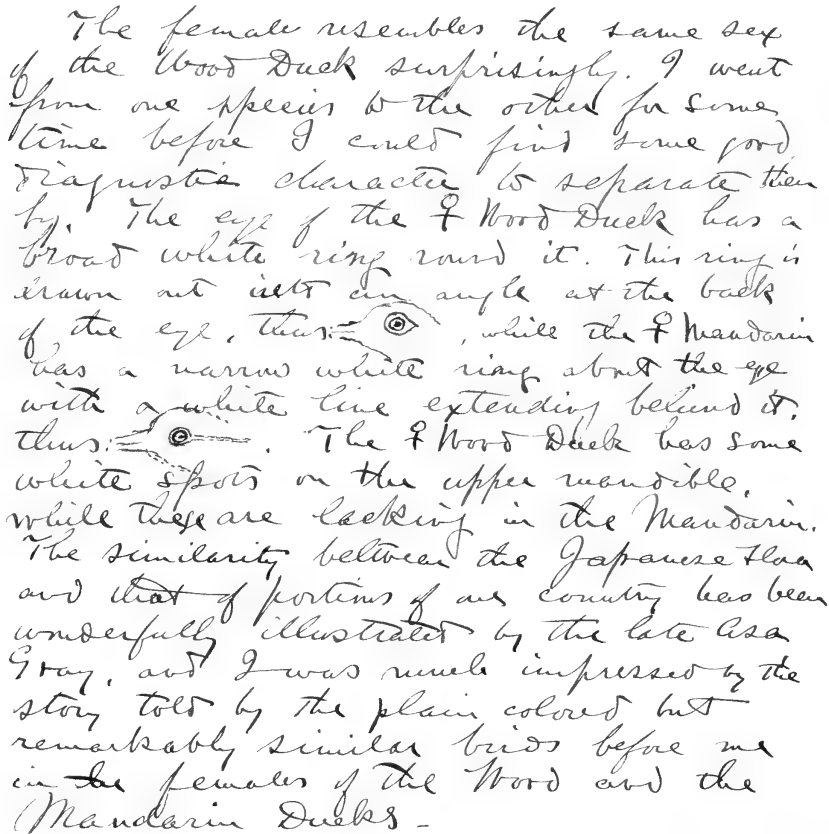 The female resembles the same sex
of the Wood Duck surprisingly. I went
from one species to the other for some
time before I could find some good
diagnostic character to separate them
by. The eye of the ♀ Wood Duck has a
broad white ring round it. This ring is
drawn out into an angle at the back
of the eye, thus: , while the ♀ Mandarin
has a narrow white ring about the eye
with a white line extending behind it,
thus: . The ♀ Wood Duck has some
white spots on the upper mandible,
while these are lacking in the Mandarin.
The similarity between the Japanese flora
and that of portions of our country has been
wonderfully illustrated by the late Asa
Gray, and I was much impressed by the
story told by the plain colored but
remarkably similar birds before me
in the females of the Wood and the
Mandarin Ducks.